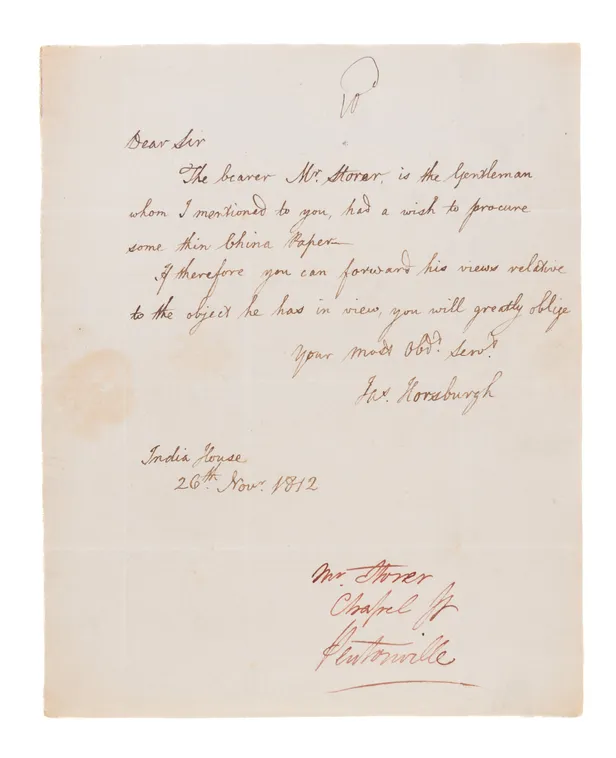 10d
Dear Sir
The bearer Mr. Storer, is the Gentleman
whom I mentioned to you, had a wish to procure
some thin China Paper
If therefore you can forward his views relative
to the object he has in view, you will greatly oblige
Your most Obdt. Servt.
Jas. Horsburgh
India House
26th. Novr. 1812
Mr. Storer
Chapel St
Pentonville